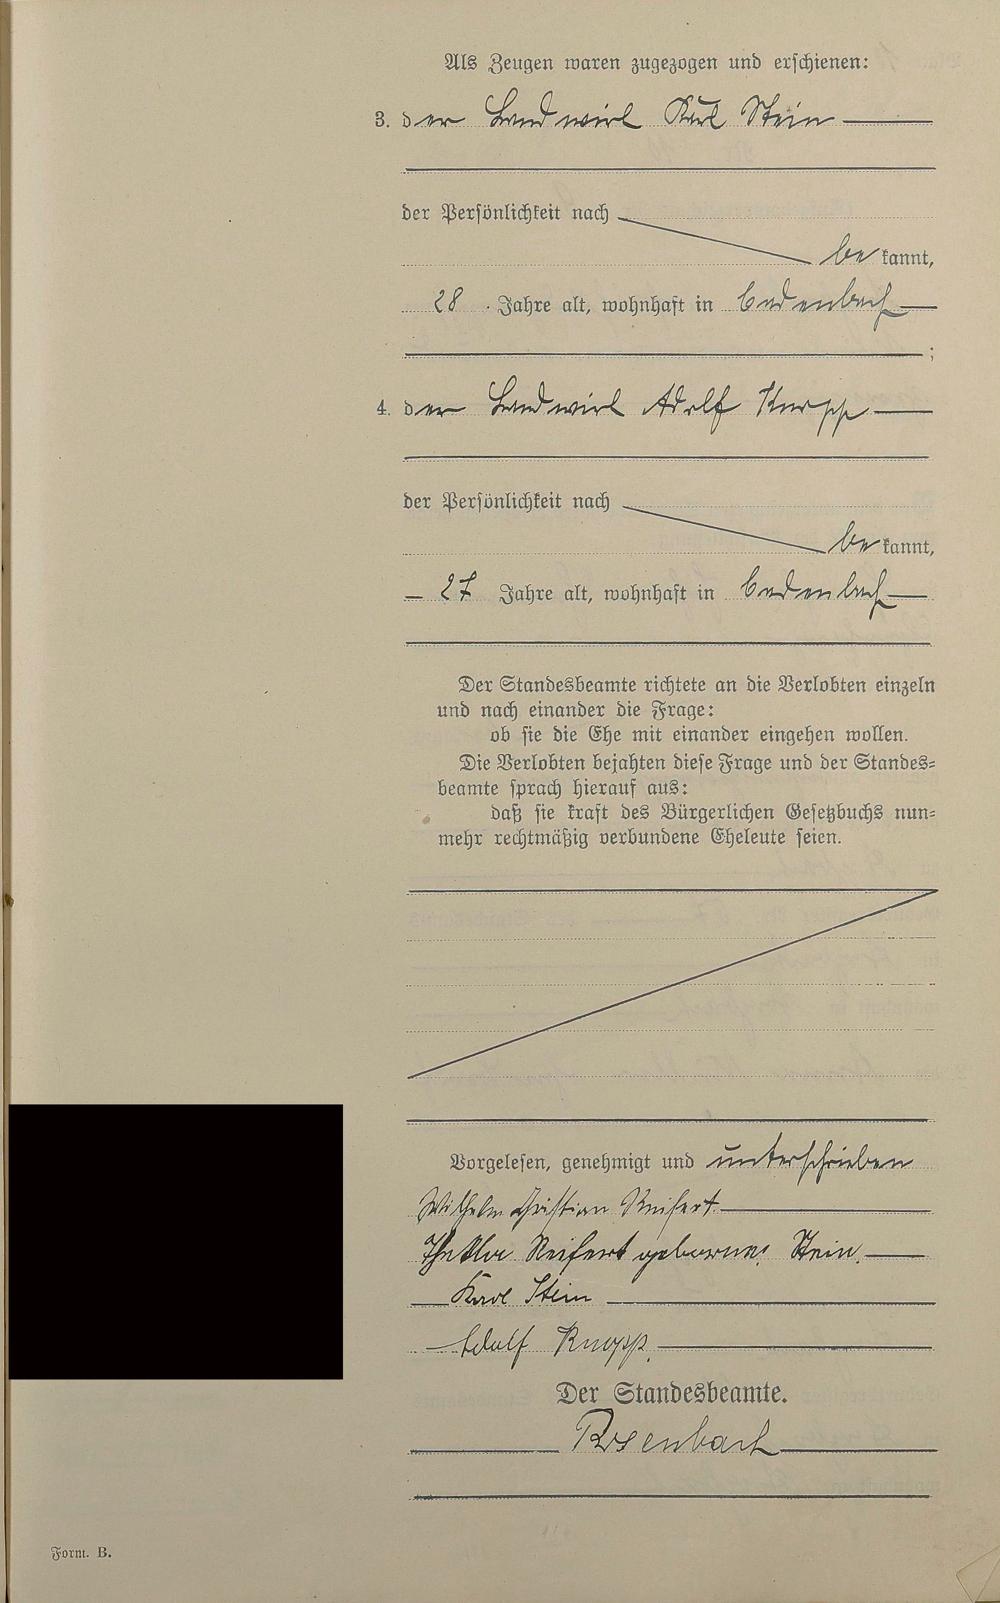 Als Zeugen waren zugezogen und erschienen:
3. der Landwirt Karl Stein
der Persönlichkeit nach
bekannt,
28 Jahre alt, wohnhaft in
;
4. der Landwirt Adolf Knopp
der Persönlichkeit nach
bekannt,
27 Jahre alt, wohnhaft in
Der Standesbeamte richtete an die Verlobten einzeln
und nach einander die Frage:
ob sie die Ehe mit einander eingehen wollen.
Die Verlobten bejahten diese Frage und der Standes-
beamte sprach hierauf aus:
daß sie kraft des Bürgerlichen Gesetzbuchs nun-
mehr rechtmäßig verbundene Eheleute seien.
Vorgelesen, genehmigt und unterschrieben
Wilhelm Christian Neifert
Neifert geborene Stein.
Karl Stein
Adolf Knopp.
Der Standesbeamte.
Rosenbach
Form. B.